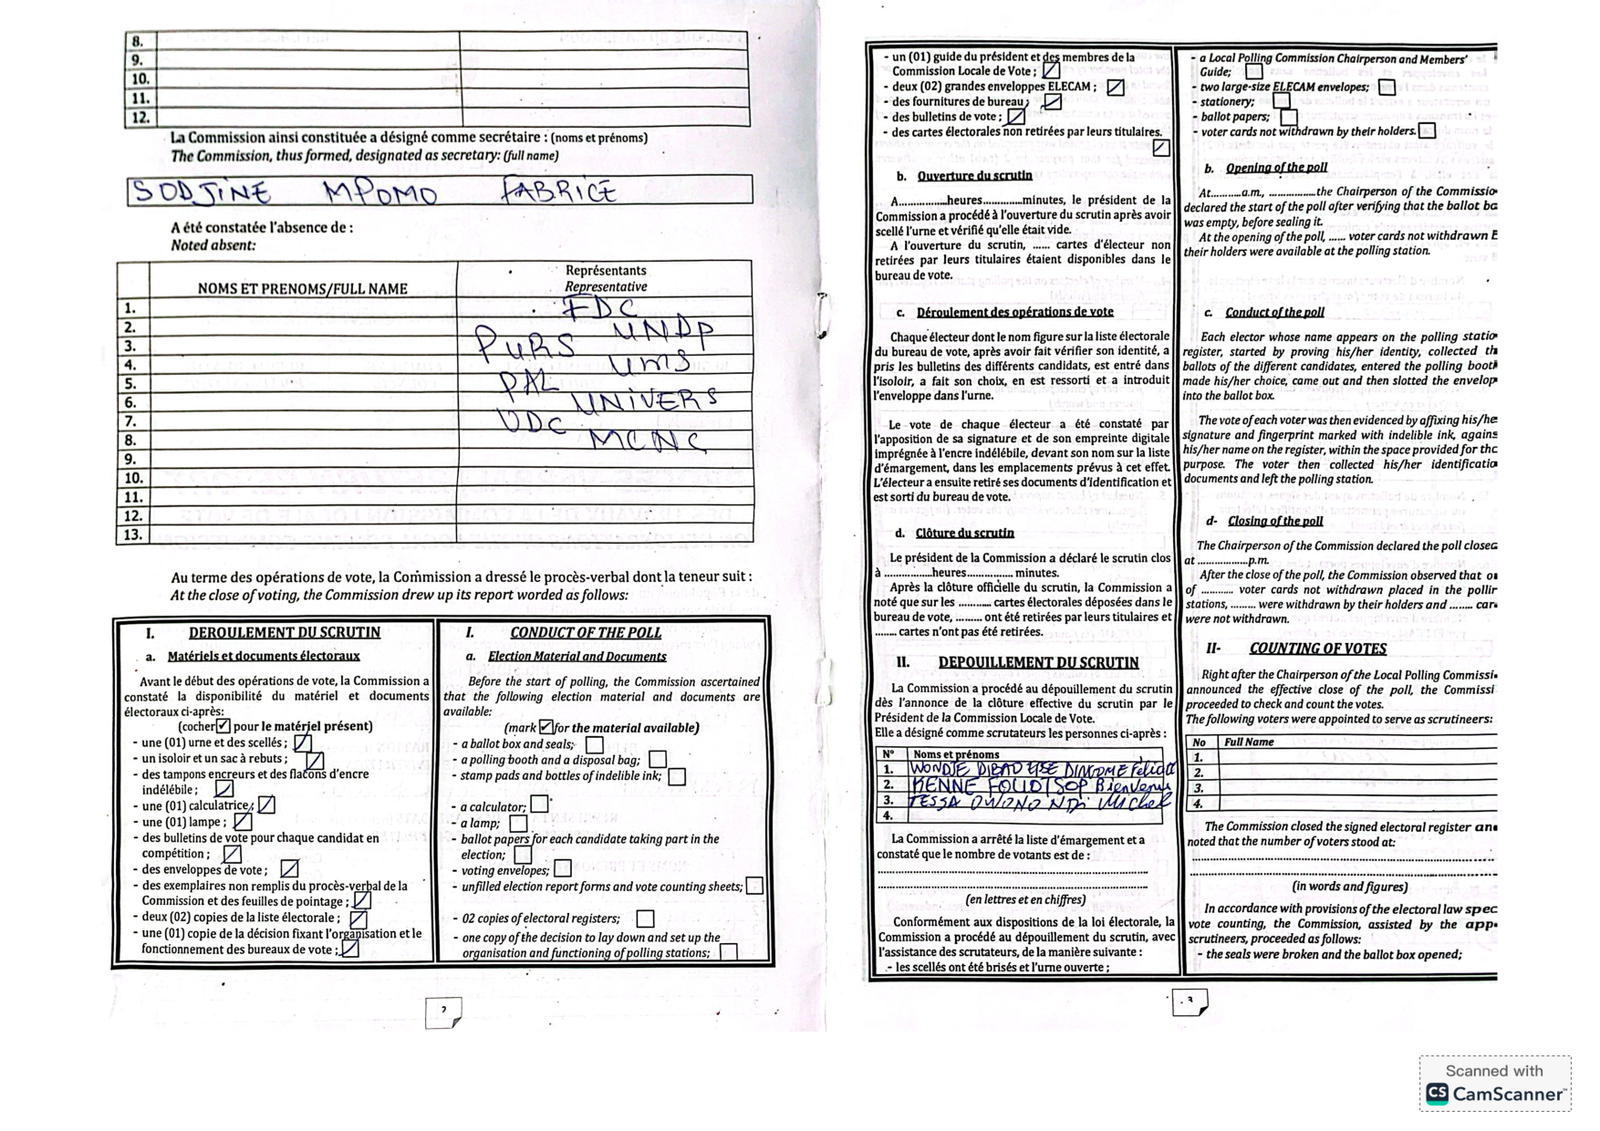 8.
9.
10.
11.
12.
La Commission ainsi constituée a désigné comme secrétaire : (noms et prénoms)
The Commission, thus formed, designated as secretary: (full name)
SODJINE MPOMO FABRICE
A été constatée l'absence de :
Noted absent:
NOMS ET PRENOMS/FULL NAME
Représentants
Representative
1. FDC
2. UNDP
3. PURS
4. UMS
5. PAL
6. UNIVERS
7. UDC
8. MCNC
9.
10.
11.
12.
13.
Au terme des opérations de vote, la Commission a dressé le procès-verbal dont la teneur suit :
At the close of voting, the Commission drew up its report worded as follows:
I. DEROULEMENT DU SCRUTIN
a. Matériels et documents électoraux
Avant le début des opérations de vote, la Commission a
constaté la disponibilité du matériel et documents
électoraux ci-après:
(cocher ☑ pour le matériel présent)
- une (01) urne et des scellés ;
- un isoloir et un sac à rebuts ;
- des tampons encreurs et des flacons d'encre
indélébile ;
- une (01) calculatrice,
- une (01) lampe ;
- des bulletins de vote pour chaque candidat en
compétition ;
- des enveloppes de vote ;
- des exemplaires non remplis du procès-verbal de la
Commission et des feuilles de pointage ;
- deux (02) copies de la liste électorale ;
- une (01) copie de la décision fixant l'organisation et le
fonctionnement des bureaux de vote ;
I. CONDUCT OF THE POLL
a. Election Material and Documents
Before the start of polling, the Commission ascertained
that the following election material and documents are
available:
(mark ☑ for the material available)
- a ballot box and seals;
- a polling booth and a disposal bag;
- stamp pads and bottles of indelible ink;
- a calculator;
- a lamp;
- ballot papers for each candidate taking part in the
election;
- voting envelopes;
- unfilled election report forms and vote counting sheets;
- 02 copies of electoral registers;
- one copy of the decision to lay down and set up the
organisation and functioning of polling stations;
2
- un (01) guide du président et des membres de la
Commission Locale de Vote ;
- deux (02) grandes enveloppes ELECAM ;
- des fournitures de bureau ;
- des bulletins de vote ;
- des cartes électorales non retirées par leurs titulaires.
b. Ouverture du scrutin
A...............heures.............minutes, le président de la
Commission a procédé à l'ouverture du scrutin après avoir
scellé l'urne et vérifié qu'elle était vide.
A l'ouverture du scrutin, ...... cartes d'électeur non
retirées par leurs titulaires étaient disponibles dans le
bureau de vote.
c. Déroulement des opérations de vote
Chaque électeur dont le nom figure sur la liste électorale
du bureau de vote, après avoir fait vérifier son identité, a
pris les bulletins des différents candidats, est entré dans
l'isoloir, a fait son choix, en est ressorti et a introduit
l'enveloppe dans l'urne.
Le vote de chaque électeur a été constaté par
l'apposition de sa signature et de son empreinte digitale
imprégnée à l'encre indélébile, devant son nom sur la liste
d'émargement, dans les emplacements prévus à cet effet.
L'électeur a ensuite retiré ses documents d'identification et
est sorti du bureau de vote.
d. Clôture du scrutin
Le président de la Commission a déclaré le scrutin clos
à ...............heures............... minutes.
Après la clôture officielle du scrutin, la Commission a
noté que sur les ........... cartes électorales déposées dans le
bureau de vote, ......... ont été retirées par leurs titulaires et
........ cartes n'ont pas été retirées.
II. DEPOUILLEMENT DU SCRUTIN
La Commission a procédé au dépouillement du scrutin
dès l'annonce de la clôture effective du scrutin par le
Président de la Commission Locale de Vote.
Elle a désigné comme scrutateurs les personnes ci-après :
N° Noms et prénoms
1. WONDJE DIBAD
2. KENNE FOUDTSOP Bienvenu
3. TESSA OWONO NDI Michel
4.
La Commission a arrêté la liste d'émargement et a
constaté que le nombre de votants est de :
(en lettres et en chiffres)
Conformément aux dispositions de la loi électorale, la
Commission a procédé au dépouillement du scrutin, avec
l'assistance des scrutateurs, de la manière suivante :
- les scellés ont été brisés et l'urne ouverte ;
- a Local Polling Commission Chairperson and Members'
Guide;
- two large-size ELECAM envelopes;
- stationery;
- ballot papers;
- voter cards not withdrawn by their holders.
b. Opening of the poll
At..........a.m., ................the Chairperson of the Commissio
declared the start of the poll after verifying that the ballot bo
was empty, before sealing it.
At the opening of the poll, ...... voter cards not withdrawn
their holders were available at the polling station.
c. Conduct of the poll
Each elector whose name appears on the polling statio
register, started by proving his/her identity, collected th
ballots of the different candidates, entered the polling booth
made his/her choice, came out and then slotted the envelop
into the ballot box.
The vote of each voter was then evidenced by affixing his/he
signature and fingerprint marked with indelible ink, agains
his/her name on the register, within the space provided for the
purpose. The voter then collected his/her identificatio
documents and left the polling station.
d- Closing of the poll
The Chairperson of the Commission declared the poll closed
at ..................p.m.
After the close of the poll, the Commission observed that
of ........... voter cards not withdrawn placed in the pollin
stations, ......... were withdrawn by their holders and ........ car
were not withdrawn.
II- COUNTING OF VOTES
Right after the Chairperson of the Local Polling Commissi
announced the effective close of the poll, the Commissi
proceeded to check and count the votes.
The following voters were appointed to serve as scrutineers:
No Full Name
1.
2.
3.
4.
The Commission closed the signed electoral register an
noted that the number of voters stood at:
(in words and figures)
In accordance with provisions of the electoral law spec
vote counting, the Commission, assisted by the app
scrutineers, proceeded as follows:
- the seals were broken and the ballot box opened;
3
Scanned with
CS CamScanner